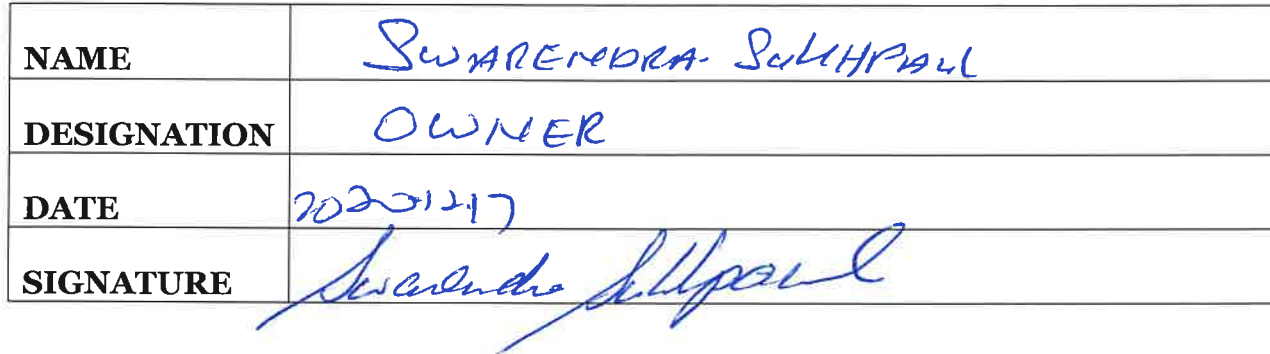 NAME SWARENDRA SUKHPAUL
DESIGNATION OWNER
DATE 20201217
SIGNATURE Swarendra Sukhpaul